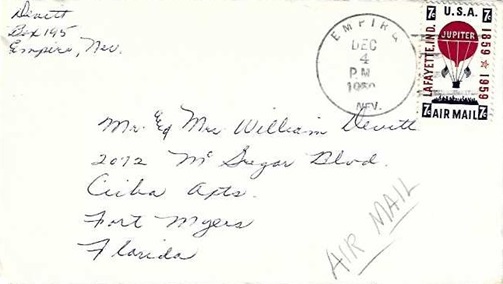 Devitt
Box 195
Empire, Nev.
EMPIRE
DEC
4
P M
NEV.
7c U.S.A. 7c
LAFAYETTE, IND.
JUPITER
1859 ★ 1959
7c AIR MAIL 7c
Mr. & Mrs William Devitt
2072 McGregor Blvd.
Ceiba Apts.
Fort Myers
Florida
AIR MAIL